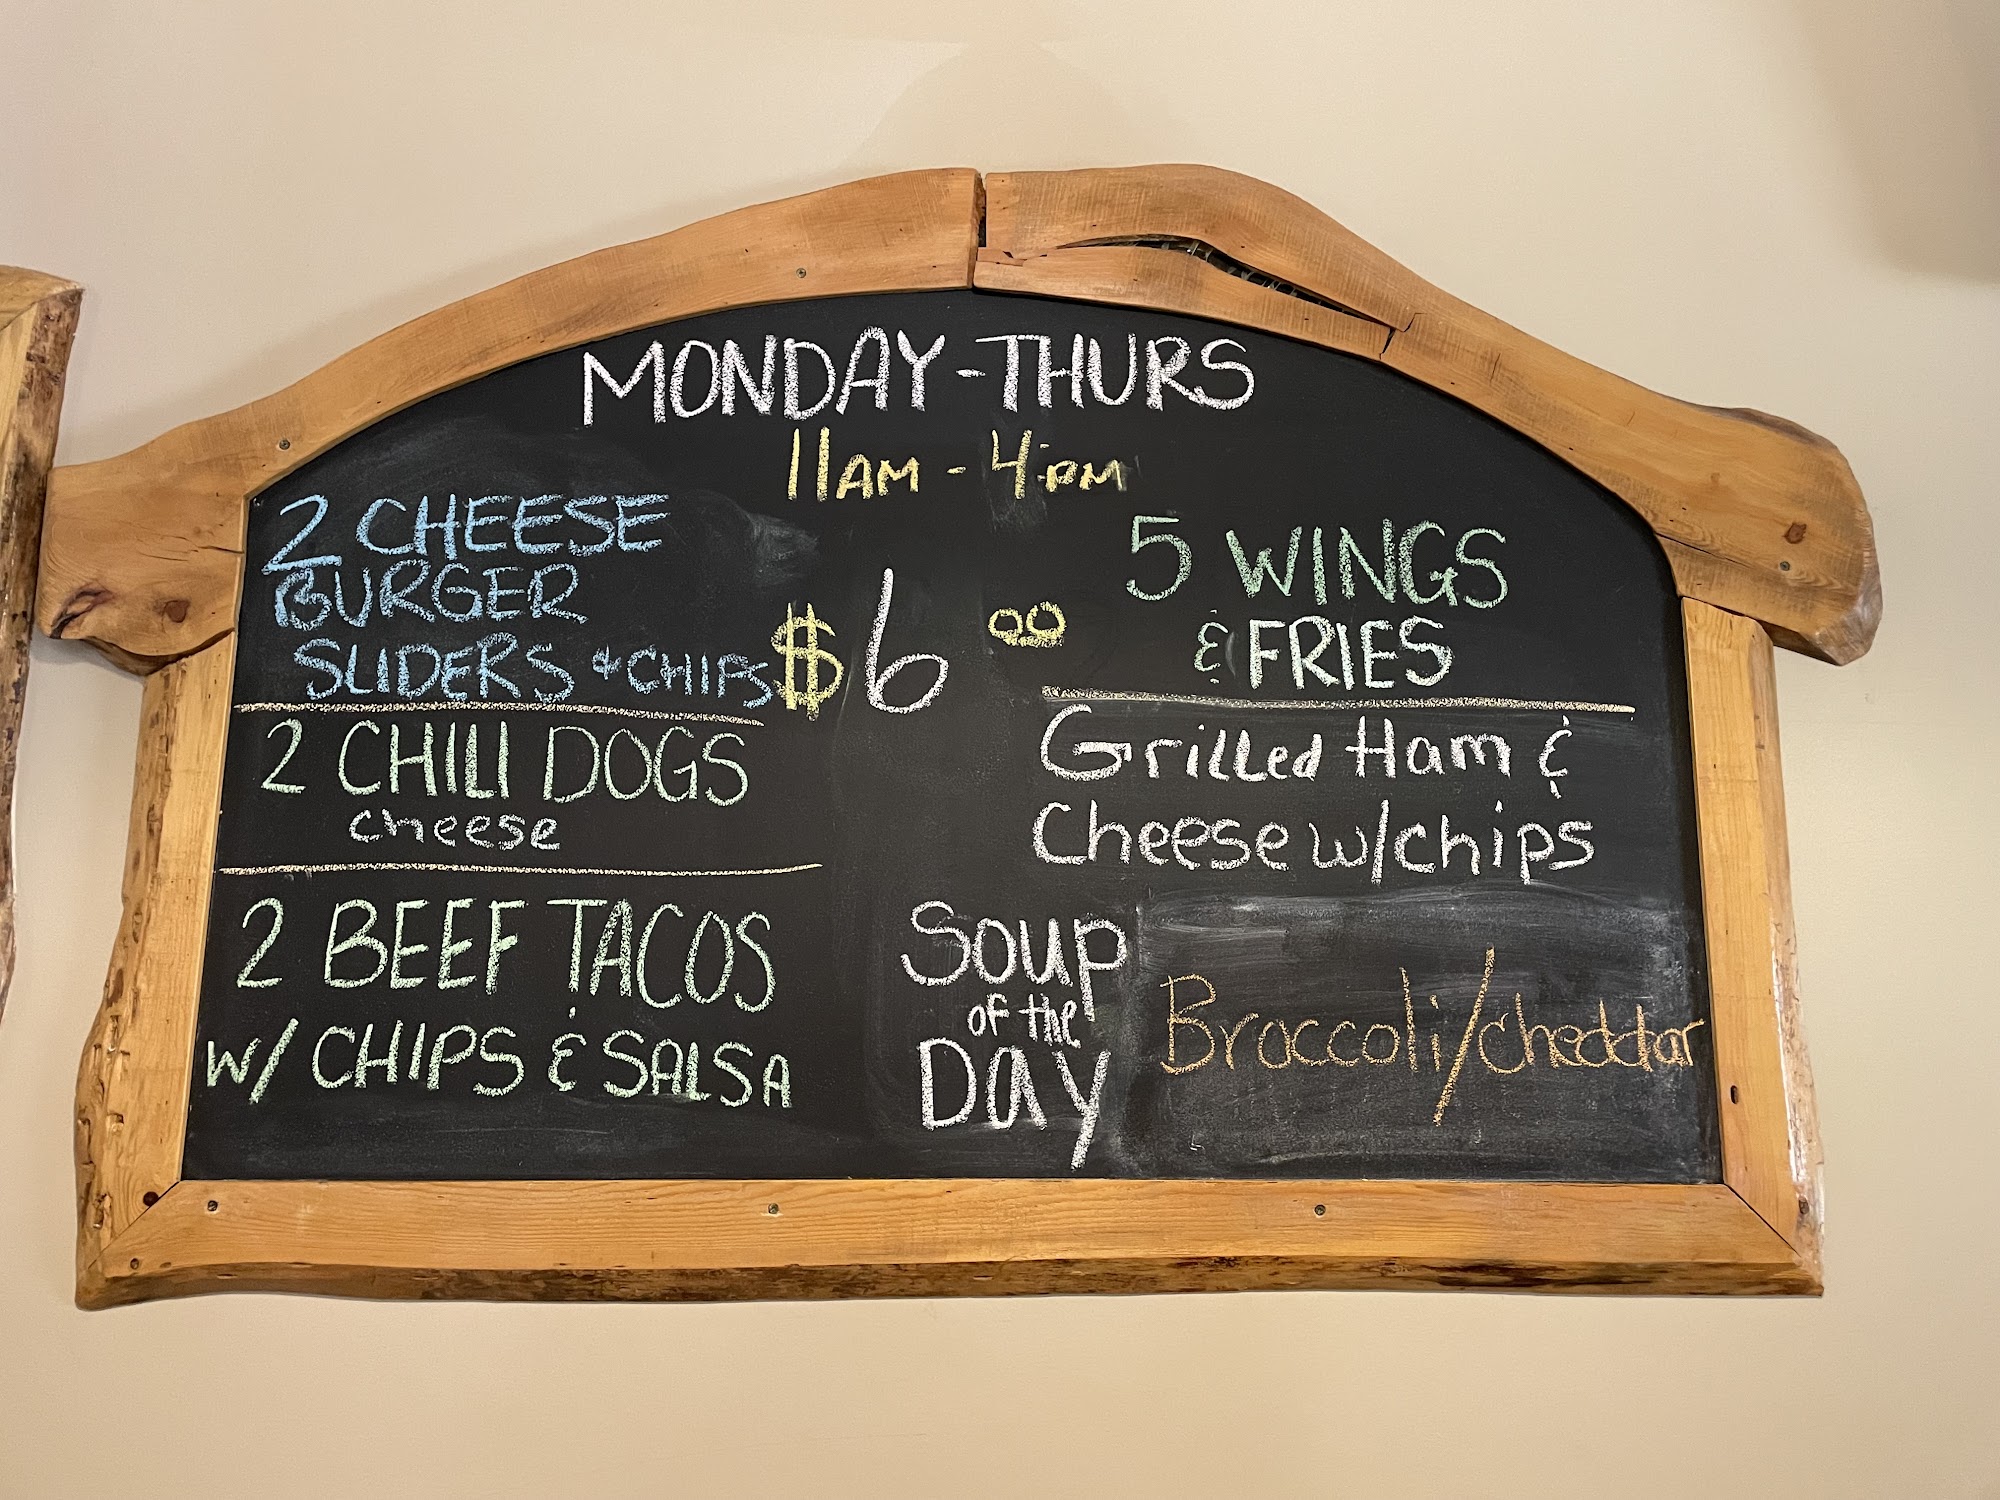 MONDAY-THURS
11AM - 4PM
2 CHEESE
BURGER
SLIDERS & CHIPS
$6 00
2 CHILI DOGS
cheese
2 BEEF TACOS
W/ CHIPS & SALSA
5 WINGS
& FRIES
Grilled Ham &
Cheese w/chips
Soup
of the
Day
Broccoli/cheddar